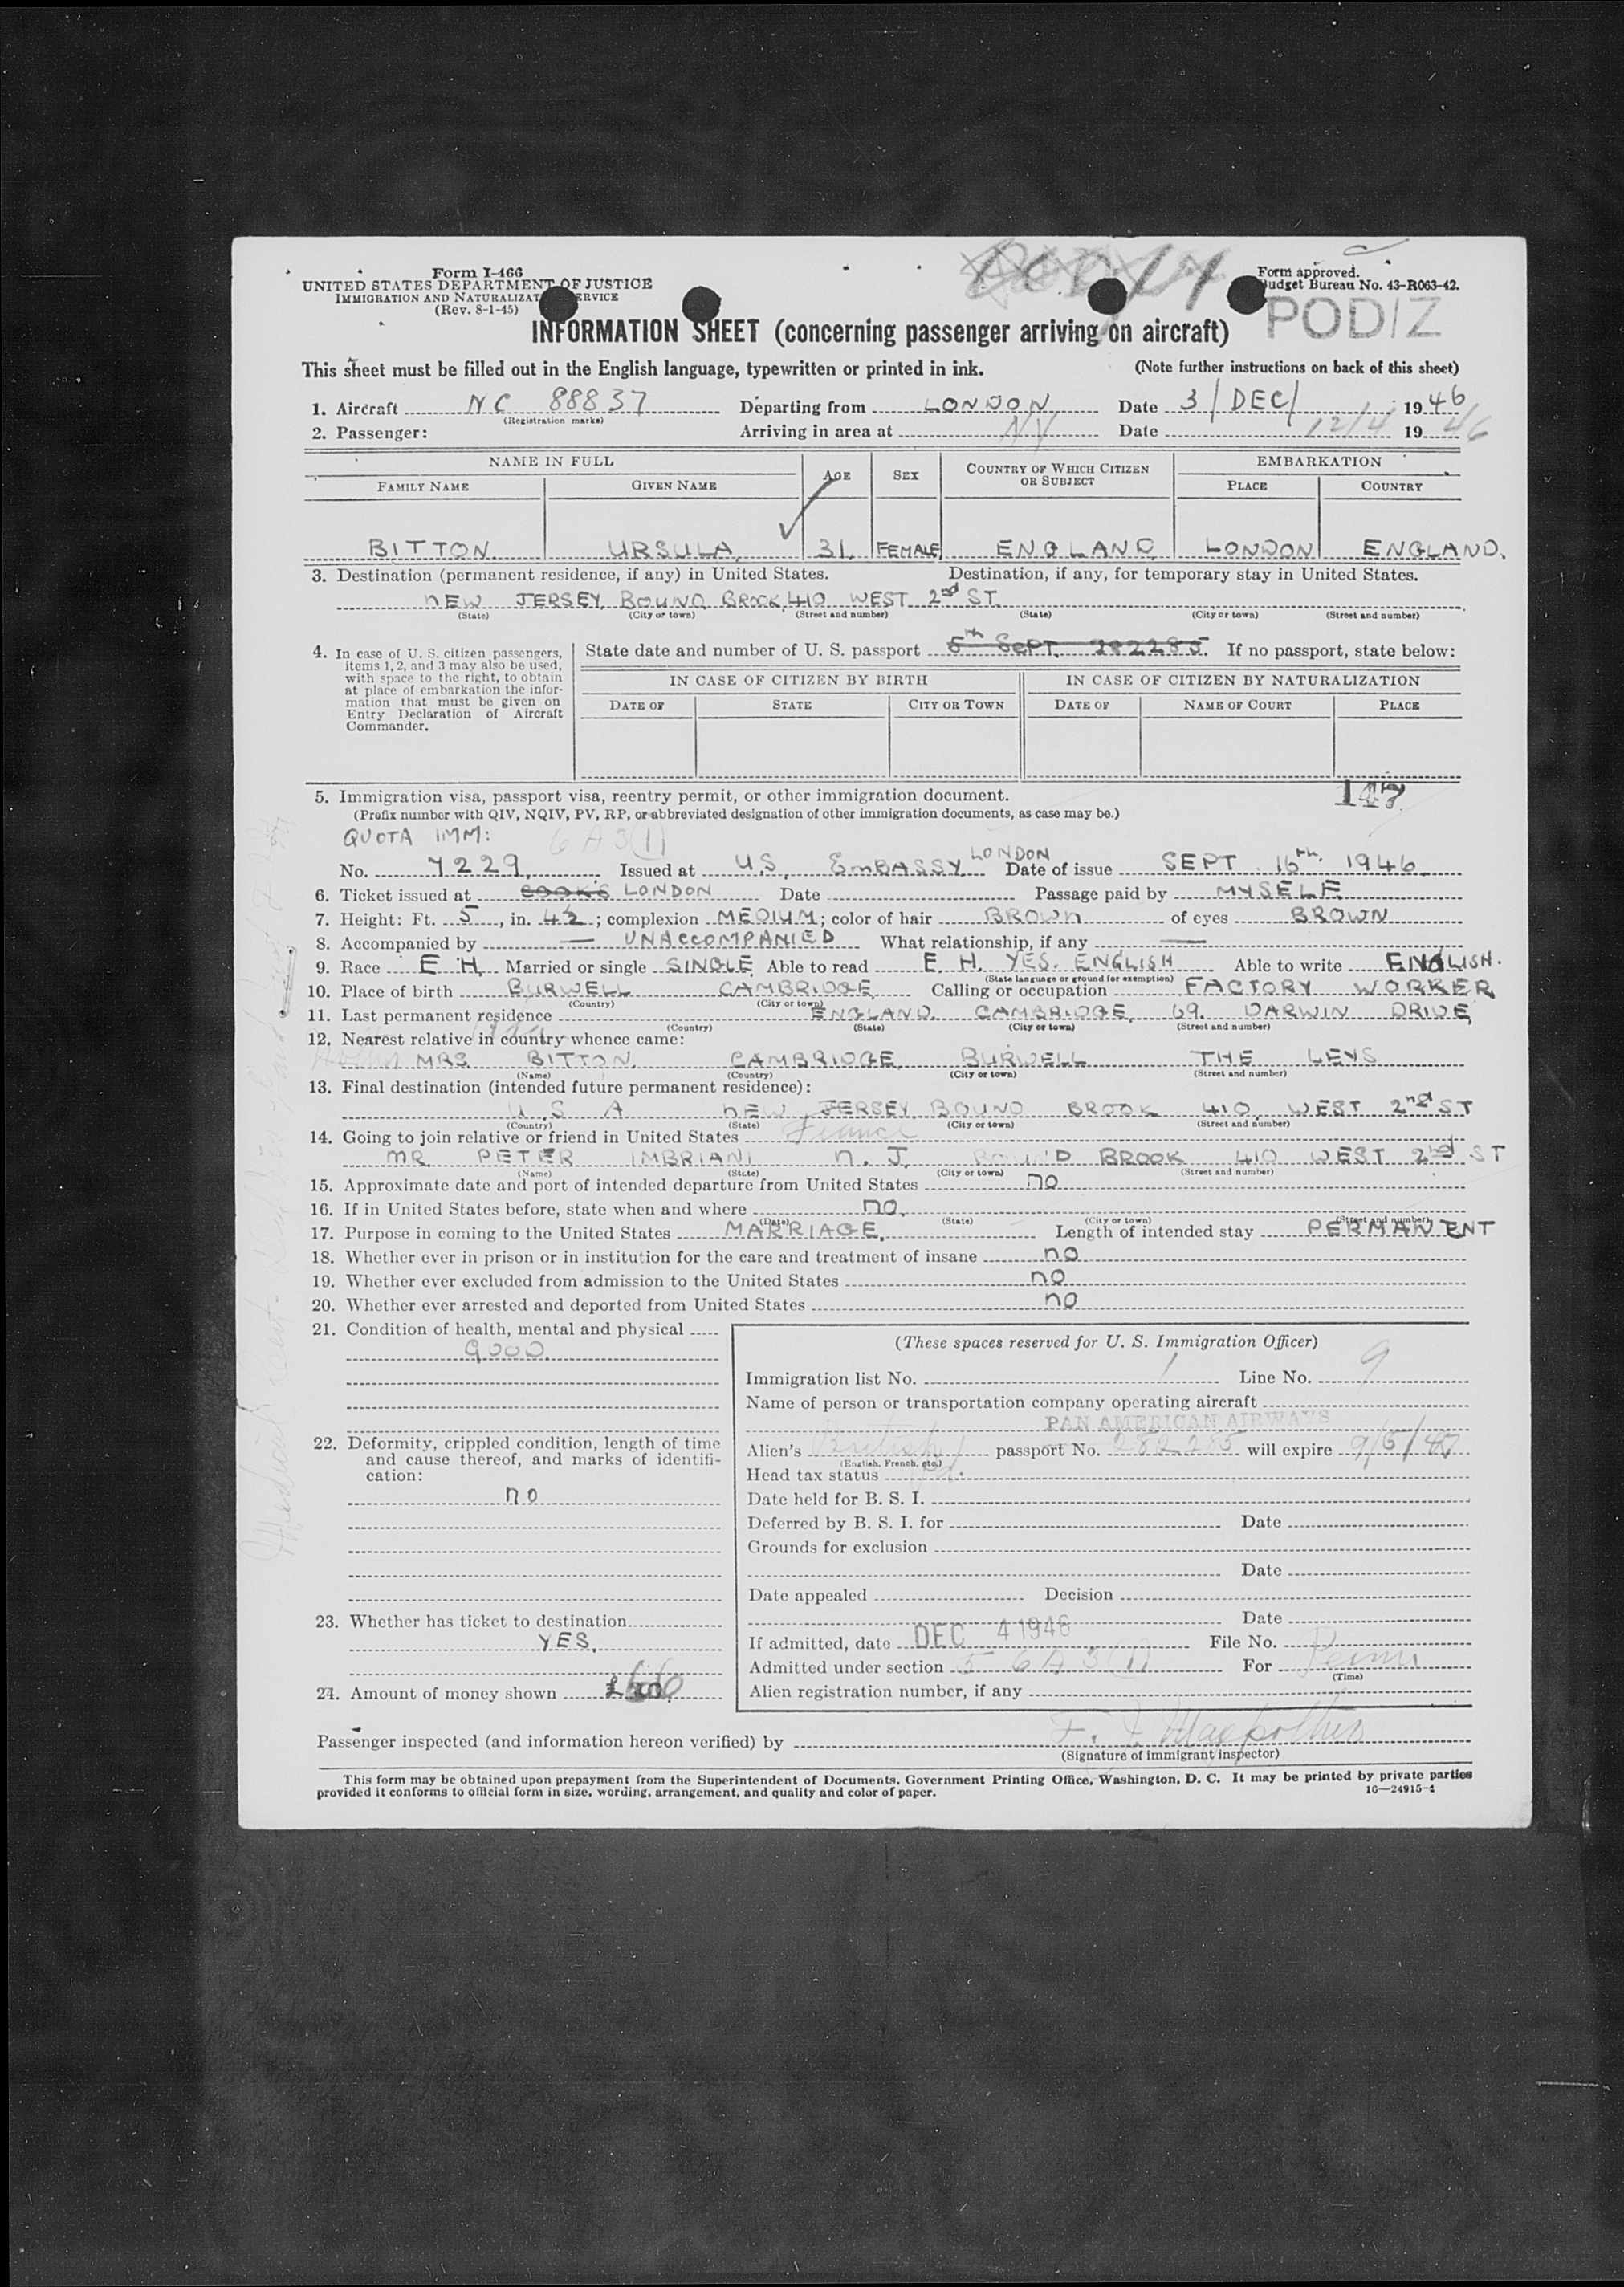 Form I-466
UNITED STATES DEPARTMENT OF JUSTICE
IMMIGRATION AND NATURALIZAT ERVICE
(Rev. 8-1-45)
Form approved.
udget Bureau No. 43-R063-42.
PODIZ
INFORMATION SHEET (concerning passenger arriving on aircraft)
This sheet must be filled out in the English language, typewritten or printed in ink. (Note further instructions on back of this sheet)
1. Aircraft NC 88837 Departing from LONDON Date 3/DEC/ 1946
(Registration marks)
2. Passenger: Arriving in area at NY Date 12/4 1946
NAME IN FULL AGE SEX COUNTRY OF WHICH CITIZEN OR SUBJECT EMBARKATION
FAMILY NAME GIVEN NAME PLACE COUNTRY
BITTON URSULA 31. FEMALE ENGLAND LONDON ENGLAND.
3. Destination (permanent residence, if any) in United States. Destination, if any, for temporary stay in United States.
NEW JERSEY BOUND BROOK 410 WEST 2nd ST.
(State) (City or town) (Street and number) (State) (City or town) (Street and number)
4. In case of U. S. citizen passengers, items 1, 2, and 3 may also be used, with space to the right, to obtain at place of embarkation the information that must be given on Entry Declaration of Aircraft Commander.
State date and number of U. S. passport 5th SEPT. 282285. If no passport, state below:
IN CASE OF CITIZEN BY BIRTH IN CASE OF CITIZEN BY NATURALIZATION
DATE OF STATE CITY OR TOWN DATE OF NAME OF COURT PLACE
147
5. Immigration visa, passport visa, reentry permit, or other immigration document.
(Prefix number with QIV, NQIV, PV, RP, or abbreviated designation of other immigration documents, as case may be.)
QUOTA IMM: 6 A 3(1)
No. 7229 Issued at U.S. EMBASSY LONDON Date of issue SEPT 16th 1946
6. Ticket issued at COOKS LONDON Date Passage paid by MYSELF
7. Height: Ft. 5, in. 4½; complexion MEDIUM; color of hair BROWN of eyes BROWN
8. Accompanied by — UNACCOMPANIED What relationship, if any —
9. Race E H. Married or single SINGLE Able to read E. H. YES. ENGLISH Able to write ENGLISH.
(State language or ground for exemption)
10. Place of birth BURWELL CAMBRIDGE Calling or occupation FACTORY WORKER
(Country) (City or town)
11. Last permanent residence ENGLAND. CAMBRIDGE, 69. DARWIN DRIVE
(Country) (State) (City or town) (Street and number)
12. Nearest relative in country whence came:
MRS BITTON. CAMBRIDGE BURWELL THE LEYS
(Name) (Country) (City or town) (Street and number)
13. Final destination (intended future permanent residence):
U S A NEW JERSEY BOUND BROOK 410. WEST 2nd ST
(Country) (State) (City or town) (Street and number)
14. Going to join relative or friend in United States Fiance
MR PETER IMBRIANI N. J. BOUND BROOK 410 WEST 2nd ST
(Name) (State) (City or town) (Street and number)
15. Approximate date and port of intended departure from United States NO
16. If in United States before, state when and where NO.
(Date) (State) (City or town) (Street and number)
17. Purpose in coming to the United States MARRIAGE. Length of intended stay PERMANENT
18. Whether ever in prison or in institution for the care and treatment of insane NO
19. Whether ever excluded from admission to the United States NO
20. Whether ever arrested and deported from United States NO
21. Condition of health, mental and physical
GOOD.
22. Deformity, crippled condition, length of time and cause thereof, and marks of identification:
NO
23. Whether has ticket to destination
YES.
24. Amount of money shown
(These spaces reserved for U. S. Immigration Officer)
Immigration list No. 1 Line No. 9
Name of person or transportation company operating aircraft
PAN AMERICAN AIRWAYS
Alien's British passport No. 282285 will expire 9/5/47
(English, French, etc.)
Head tax status
Date held for B. S. I.
Deferred by B. S. I. for Date
Grounds for exclusion
Date
Date appealed Decision
Date
If admitted, date DEC 4 1946 File No.
Admitted under section 5 6 A 3(1) For Perm
(Time)
Alien registration number, if any
Passenger inspected (and information hereon verified) by
(Signature of immigrant inspector)
This form may be obtained upon prepayment from the Superintendent of Documents, Government Printing Office, Washington, D. C. It may be printed by private parties
provided it conforms to official form in size, wording, arrangement, and quality and color of paper. 16—24915-1